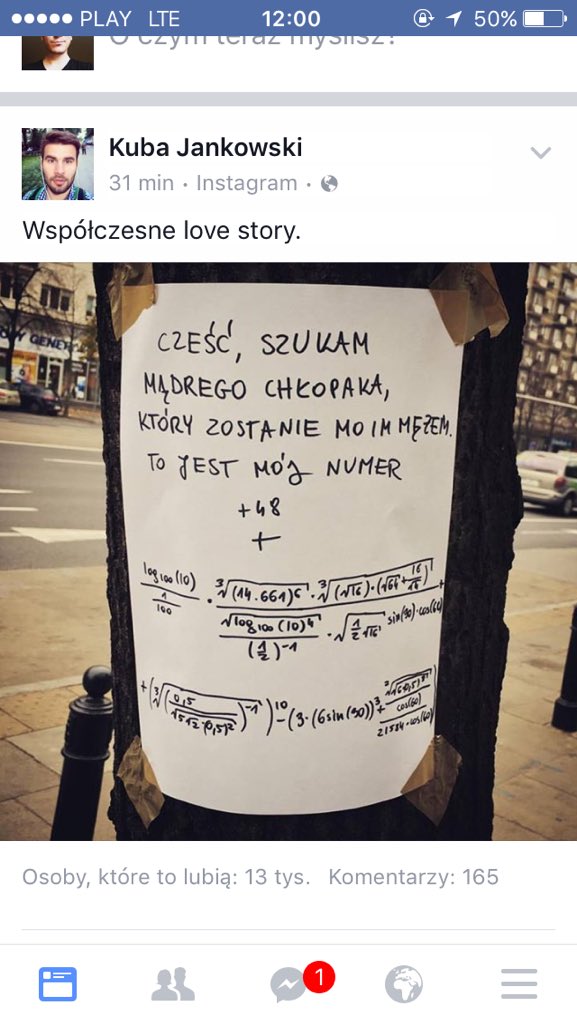 PLAY LTE 12:00 50%
O czym teraz myślisz?
Kuba Jankowski
31 min · Instagram ·
Współczesne love story.
CZEŚĆ, SZUKAM
MĄDREGO CHŁOPAKA,
KTÓRY ZOSTANIE MOIM MĘŻEM.
TO JEST MÓJ NUMER
+48
+
log₁₀₀(10) / (1/100) · ∛(14.661)⁶ · ∛(√16)·(√64+16/√4) +
√log₁₀₀(10)⁴ / (1/2)⁻¹ · √(1/2 √16) sin(90)·cos(60)
Osoby, które to lubią: 13 tys. Komentarzy: 165
1